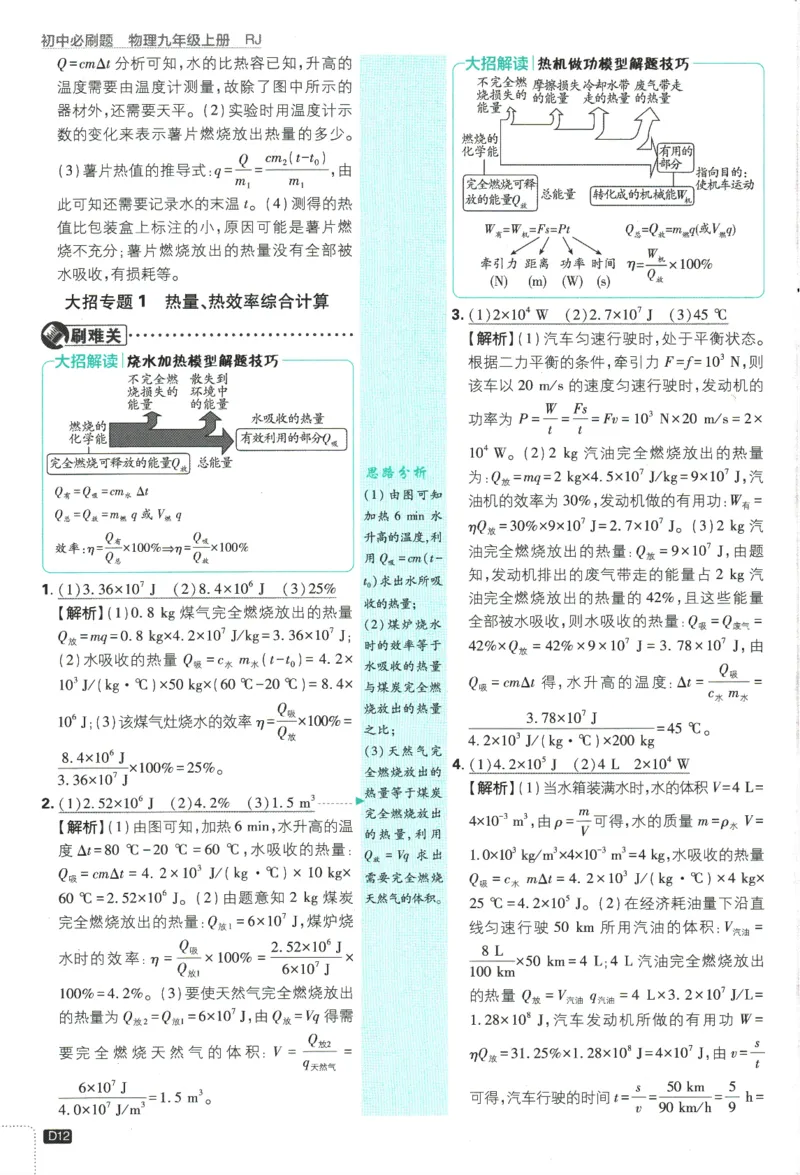 初中必刷题 物理九年级上册 RJ
Q=cmΔt 分析可知,水的比热容已知,升高的
温度需要由温度计测量,故除了图中所示的
器材外,还需要天平。(2)实验时用温度计示
数的变化来表示薯片燃烧放出热量的多少。
(3)薯片热值的推导式:q=Q/m₁=cm₂(t-t₀)/m₁,由
此可知还需要记录水的末温 t。(4)测得的热
值比包装盒上标注的小,原因可能是薯片燃
烧不充分;薯片燃烧放出的热量没有全部被
水吸收,有损耗等。
大招专题1 热量、热效率综合计算
刷难关
大招解读 烧水加热模型解题技巧
不完全燃烧损失的能量
散失到环境中的能量
燃烧的化学能
水吸收的热量
有效利用的部分Q吸
完全燃烧可释放的能量Q放 总能量
Q有=Q吸=cm水 Δt
Q总=Q放=m燃 q 或 V燃 q
效率:η=Q有/Q总×100%⇒η=Q吸/Q放×100%
1. (1)3.36×10⁷ J (2)8.4×10⁶ J (3)25%
【解析】(1)0.8 kg 煤气完全燃烧放出的热量
Q放=mq=0.8 kg×4.2×10⁷ J/kg=3.36×10⁷ J;
(2)水吸收的热量 Q吸=c水 m水(t-t₀)=4.2×
10³ J/(kg·℃)×50 kg×(60 ℃-20 ℃)=8.4×
10⁶ J;(3)该煤气灶烧水的效率 η=Q吸/Q放×100%=
8.4×10⁶ J/3.36×10⁷ J×100%=25%。
2. (1)2.52×10⁶ J (2)4.2% (3)1.5 m³
【解析】(1)由图可知,加热 6 min,水升高的温
度 Δt=80 ℃-20 ℃=60 ℃,水吸收的热量:
Q吸=cmΔt=4.2×10³ J/(kg·℃)×10 kg×
60 ℃=2.52×10⁶ J。(2)由题意知 2 kg 煤炭
完全燃烧放出的热量:Q放1=6×10⁷ J,煤炉烧
水时的效率:η=Q吸/Q放1×100%=2.52×10⁶ J/6×10⁷ J×
100%=4.2%。(3)要使天然气完全燃烧放出
的热量为 Q放2=Q放1=6×10⁷ J,由 Q放=Vq 得需
要完全燃烧天然气的体积:V=Q放2/q天然气=
6×10⁷ J/4.0×10⁷ J/m³=1.5 m³。
D12
思路分析
(1)由图可知
加热 6 min 水
升高的温度,利
用 Q吸=cm(t-
t₀)求出水所吸
收的热量;
(2)煤炉烧水
时的效率等于
水吸收的热量
与煤炭完全燃
烧放出的热量
之比;
(3)天然气完
全燃烧放出的
热量等于煤炭
完全燃烧放出
的热量,利用
Q放=Vq 求出
需要完全燃烧
天然气的体积。
大招解读 热机做功模型解题技巧
不完全燃烧损失的能量
摩擦损失的能量
冷却水带走的热量
废气带走的热量
燃烧的化学能
有用的部分
指向目的:使机车运动
完全燃烧可释放的能量Q放 总能量 转化成的机械能W机
W有=W机=Fs=Pt
Q总=Q放=m燃q(或V燃q)
牵引力 距离 功率 时间
(N) (m) (W) (s)
η=W机/Q放×100%
3. (1)2×10⁴ W (2)2.7×10⁷ J (3)45 ℃
【解析】(1)汽车匀速行驶时,处于平衡状态。
根据二力平衡的条件,牵引力 F=f=10³ N,则
该车以 20 m/s 的速度匀速行驶时,发动机的
功率为 P=W/t=Fs/t=Fv=10³ N×20 m/s=2×
10⁴ W。(2)2 kg 汽油完全燃烧放出的热量
为:Q放=mq=2 kg×4.5×10⁷ J/kg=9×10⁷ J,汽
油机的效率为 30%,发动机做的有用功:W有=
ηQ放=30%×9×10⁷ J=2.7×10⁷ J。(3)2 kg 汽
油完全燃烧放出的热量:Q放=9×10⁷ J,由题
知,发动机排出的废气带走的能量占 2 kg 汽
油完全燃烧放出的热量的 42%,且这些能量
全部被水吸收,则水吸收的热量:Q吸=Q废气=
42%×Q放=42%×9×10⁷ J=3.78×10⁷ J,由
Q吸=cmΔt 得,水升高的温度:Δt=Q吸/c水 m水=
3.78×10⁷ J/4.2×10³ J/(kg·℃)×200 kg=45 ℃。
4. (1)4.2×10⁵ J (2)4 L 2×10⁴ W
【解析】(1)当水箱装满水时,水的体积 V=4 L=
4×10⁻³ m³,由 ρ=m/V可得,水的质量 m=ρ水 V=
1.0×10³ kg/m³×4×10⁻³ m³=4 kg,水吸收的热量
Q吸=c水 mΔt=4.2×10³ J/(kg·℃)×4 kg×
25 ℃=4.2×10⁵ J。(2)在经济耗油量下沿直
线匀速行驶 50 km 所用汽油的体积:V汽油=
8 L/100 km×50 km=4 L;4 L 汽油完全燃烧放出
的热量 Q放=V汽油 q汽油=4 L×3.2×10⁷ J/L=
1.28×10⁸ J,汽车发动机所做的有用功 W=
ηQ放=31.25%×1.28×10⁸ J=4×10⁷ J,由 v=s/t
可得,汽车行驶的时间 t=s/v=50 km/90 km/h=5/9 h=